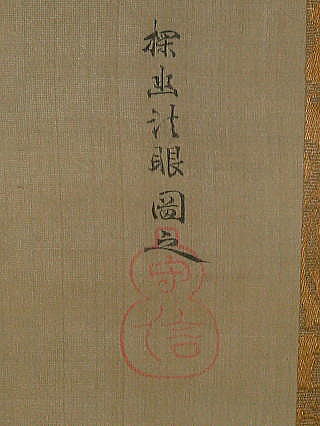 探幽法眼圖之
守信